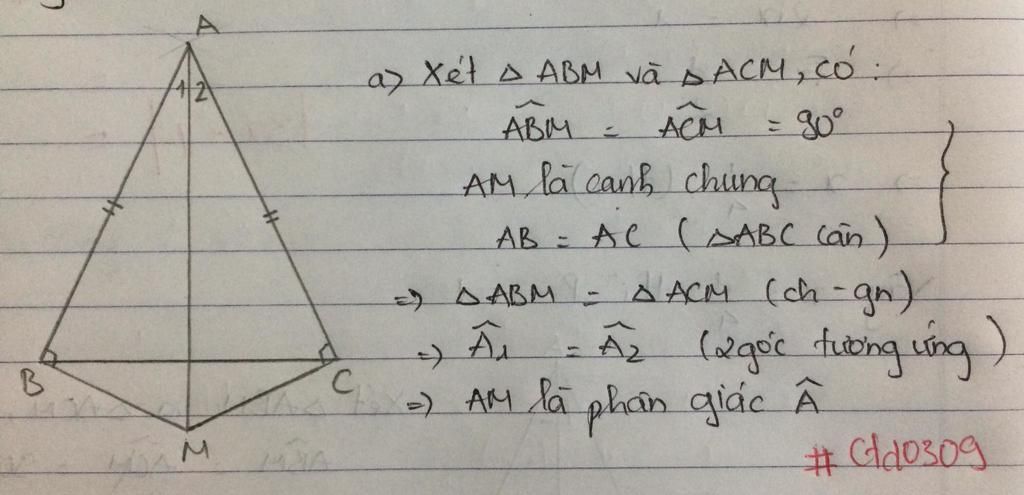 A
1 2
B
C
M
a) Xét △ ABM và △ ACM, có :
ABM̂ = ACM̂ = 90°
AM là cạnh chung
AB = AC ( △ABC cân )
=> △ ABM = △ ACM (ch - gn)
=> Â1 = Â2 (2 góc tương ứng )
=> AM là phân giác Â
# Gtd0309